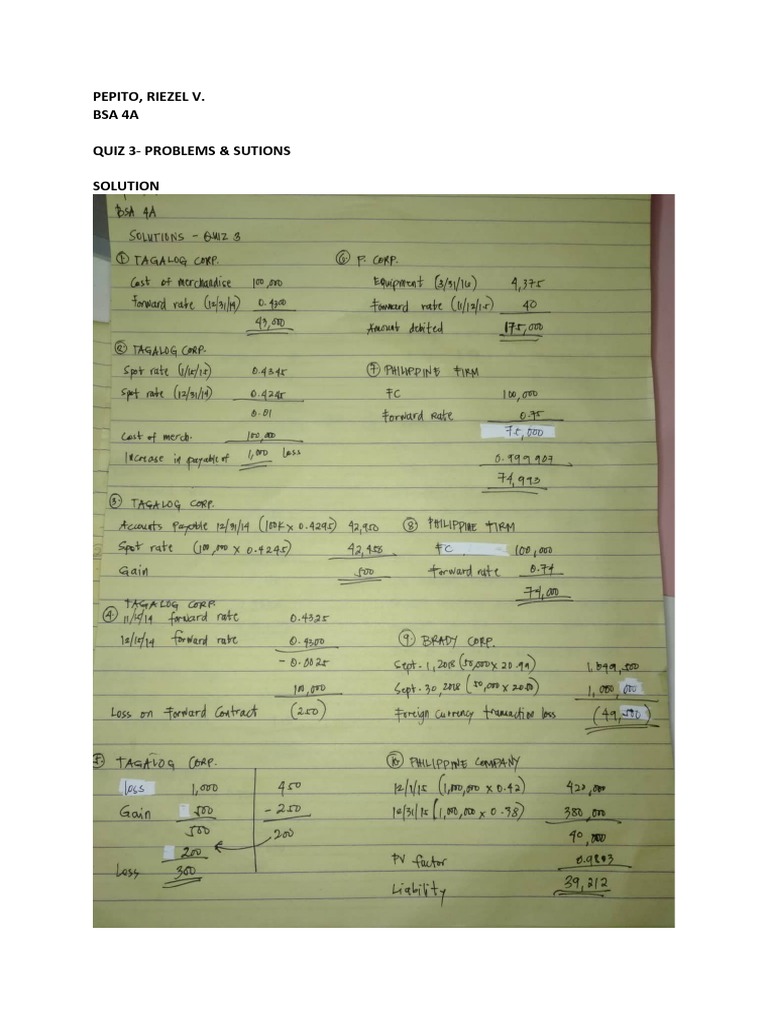 PEPITO, RIEZEL V.
BSA 4A
QUIZ 3- PROBLEMS & SUTIONS
SOLUTION
BSA 4A
SOLUTIONS - QUIZ 3
① TAGALOG CORP.
Cost of merchandise 100,000
Forward rate (12/31/14) 0.4300
43,000
② TAGALOG CORP.
Spot rate (1/15/15) 0.4345
Spot rate (12/31/14) 0.4245
0.01
Cost of merch. 100,000
Increase in payable of 1,000 loss
③ TAGALOG CORP.
Accounts Payable 12/31/14 (100K x 0.4295) 42,950
Spot rate (100,000 x 0.4245) 42,450
Gain 500
④ TAGALOG CORP.
11/15/14 forward rate 0.4325
12/15/14 forward rate 0.4300
- 0.0025
100,000
Loss on Forward Contract (250)
5. TAGALOG CORP.
loss 1,000 450
Gain 500 - 250
500 200
200
Loss 300
⑥ P. CORP.
Equipment (3/31/16) 4,375
Forward rate (11/12/15) 40
Amount debited 175,000
⑦ PHILIPPINE FIRM
FC 100,000
Forward Rate 0.75
75,000
0.999907
74,993
⑧ PHILIPPINE FIRM
FC 100,000
Forward rate 0.74
74,000
⑨ BRADY CORP.
Sept. 1, 2018 (50,000 x 20.99) 1,049,500
Sept. 30, 2018 (50,000 x 20.00) 1,000,000
Foreign Currency transaction loss (49,500)
⑩ PHILIPPINE COMPANY
12/1/15 (1,000,000 x 0.42) 420,000
12/31/15 (1,000,000 x 0.38) 380,000
40,000
PV factor 0.9803
Liability 39,212